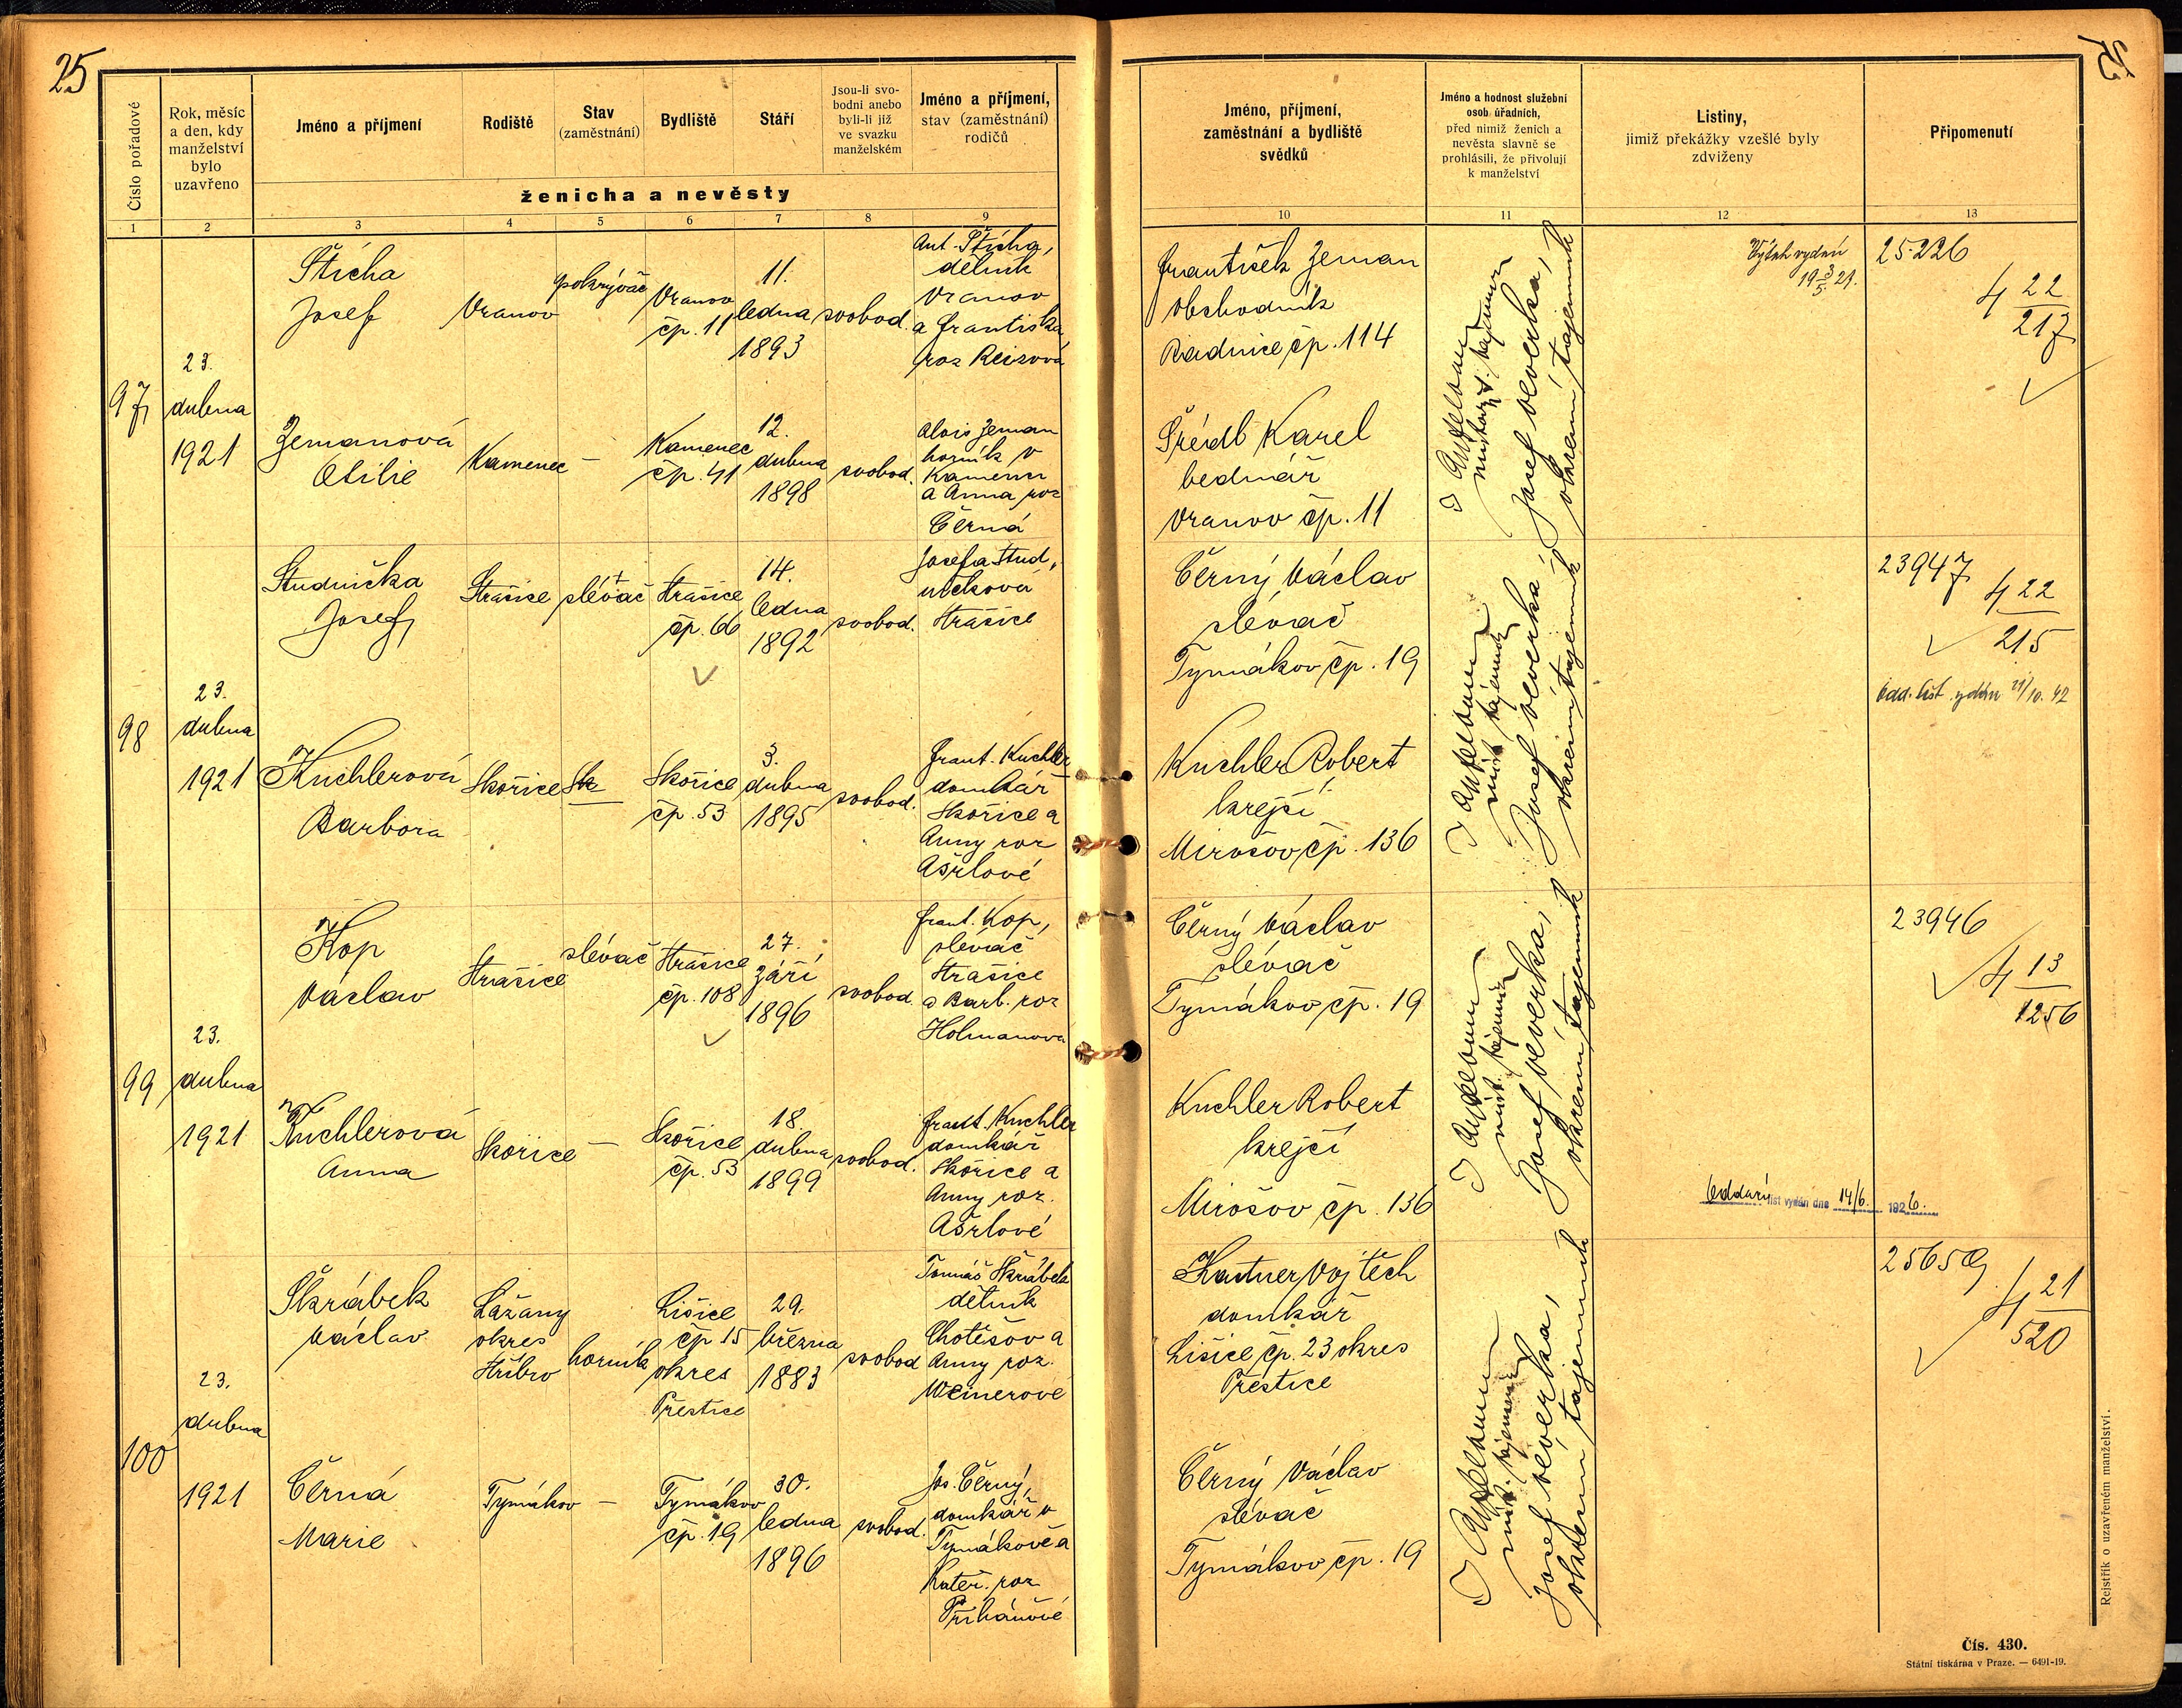 25
Číslo pořadové
Rok, měsíc
a den, kdy
manželství
bylo
uzavřeno
Jméno a příjmení
Rodiště
Stav
(zaměstnání)
Bydliště
Stáří
Jsou-li svo-
bodni anebo
byli-li již
ve svazku
manželském
Jméno a příjmení,
stav (zaměstnání)
rodičů
ženicha a nevěsty
1
2
3
4
5
6
7
8
9
Jméno, příjmení,
zaměstnání a bydliště
svědků
Jméno a hodnost služební
osob úřadních,
před nimiž ženich a
nevěsta slavně se
prohlásili, že přivolují
k manželství
Listiny,
jimiž překážky vzešlé byly
zdviženy
Připomenutí
10
11
12
13
97
23.
dubna
1921
Štícha
Josef
Vranov
pokrývač
Vranov
čp. 11
11.
ledna
1893
svobod.
Ant. Štícha,
dělník
Vranov
a Františka
roz Reisová
Zemanová
Otilie
Kamenec
—
Kamenec
čp. 41
12.
dubna
1898
svobod.
Alois Zeman
horník v
Kamenci
a Anna roz
Černá
František Zeman
obchodník
Radnice čp. 114
Šrédl Karel
bednář
Vranov čp. 11
Josef Veverka,
okresní tajemník
25226
4 22
217
98
23.
dubna
1921
Studnička
Josef
Strašice
slévač
Strašice
čp. 66
14.
ledna
1892
svobod.
Josefa Stud,
ničková
Strašice
Kuchlerová
Barbora
Skořice
Sk
Skořice
čp. 53
3.
dubna
1895
svobod.
Frant. Kuchler
domkář
Skořice a
Anny roz
Ašrlové
Černý Václav
slévač
Tymákov čp. 19
Kuchler Robert
krejčí
Mirošov čp. 136
Josef Veverka
okresní tajemník
23947
4 22
215
Odd. list vydán 21/10. 42
99
23.
dubna
1921
Kop
Václav
Strašice
slévač
Strašice
čp. 108
27.
září
1896
svobod.
Frant. Kop,
slévač
Strašice
a Barb. roz
Holmanova
Kuchlerová
Anna
Skořice
—
Skořice
čp. 53
18.
dubna
1899
svobod.
Frant. Kuchler
domkář
Skořice a
Anny roz.
Ašrlové
Černý Václav
slévač
Tymákov čp. 19
Kuchler Robert
krejčí
Mirošov čp. 136
Josef Veverka,
okresní tajemník
Oddací list vydán dne 14/6. 1926.
23946
4 13
1256
100
23.
dubna
1921
Škrábek
Václav
Lažany
okres
Stříbro
horník
Lišice
čp 15
okres
Přestice
29.
března
1883
svobod
Tomáš Škrábek
dělník
Chotěšov a
Anny roz.
Weinerové
Černá
Marie
Tymákov
—
Tymákov
čp. 19
30.
ledna
1896
svobod.
Jos. Černý,
domkář v
Tymákově a
Kateř. roz
Přibáňové
Kastner Vojtěch
domkář
Lišice čp. 23 okres
Přestice
Černý Václav
slévač
Tymákov čp. 19
Josef Veverka,
okresní tajemník
25659
4 21
520
Rejstřík o uzavřeném manželství.
Čís. 430.
Státní tiskárna v Praze. — 6491-19.